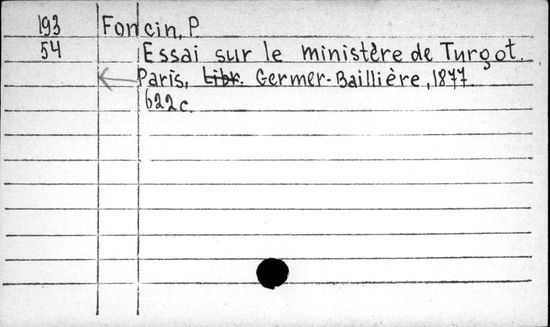 193 Foncin, P.
54 Essai sur le ministère de Turgot.
Paris, Libr. Germer-Baillière, 1877.
622c.